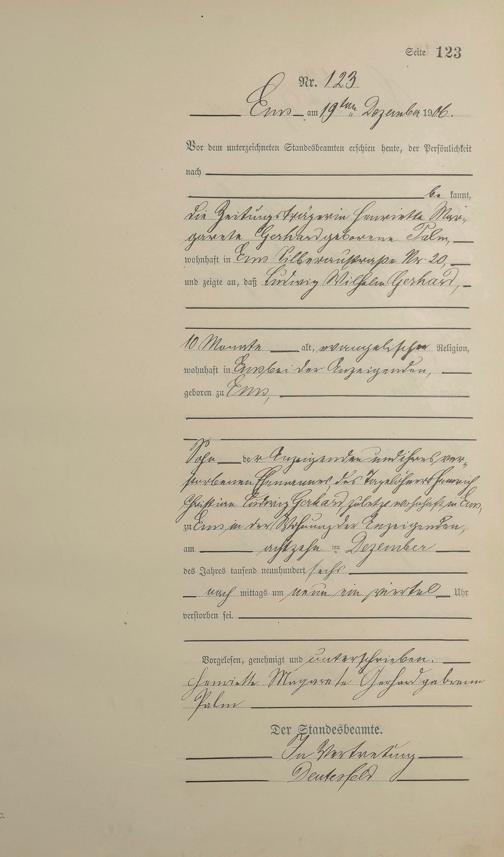 Seite 123
Nr. 123
Ems am 19ten Dezember 1906.
Vor dem unterzeichneten Standesbeamten erschien heute, der Persönlichkeit
nach
be kannt,
die Zeitungsträgerin Henriette Mar-
garete Gerhard geborene Palm,
wohnhaft in Ems Silberaustraße Nr 20,
und zeigte an, daß Ludwig Wilhelm Gerhard,
10 Monate alt, evangelischer Religion,
wohnhaft in Ems bei der Anzeigenden,
geboren zu Ems,
Sohn der Anzeigenden und ihres ver-
storbenen Ehemannes, des Tagelöhners Heinrich
Christian Ludwig Gerhard zuletzt wohnhaft in Ems,
zu Ems, in der Wohnung der Anzeigenden,
am achtzehn = Dezember
des Jahres tausend neunhundert sechs
nach mittags um neun ein viertel Uhr
verstorben sei.
Vorgelesen, genehmigt und unterschrieben.
Henriette Magarete Gerhard geborenn
Palm
Der Standesbeamte.
In Vertretung